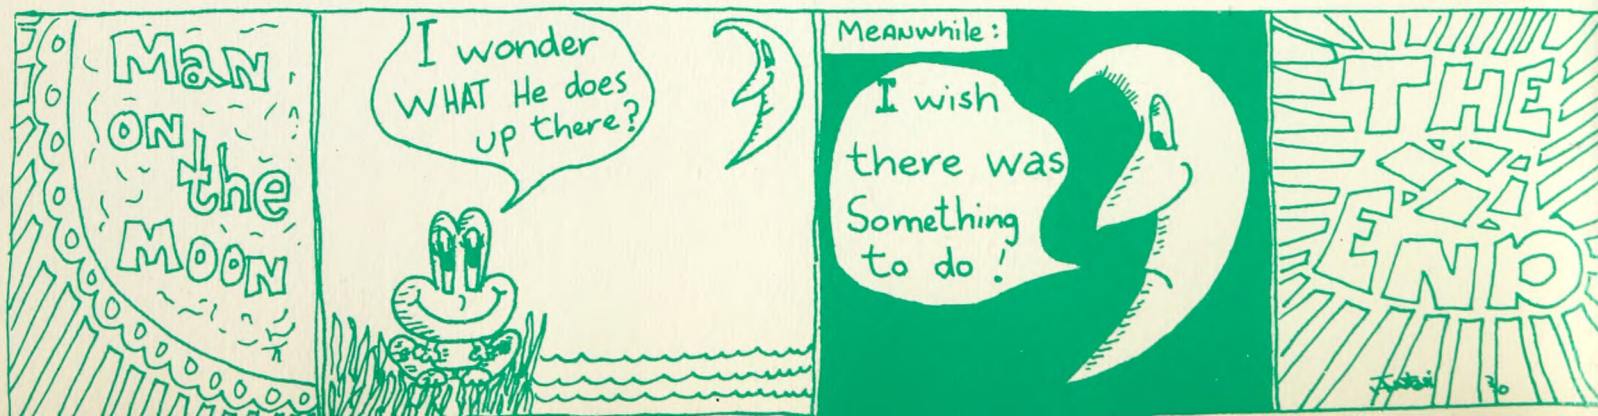 Man
ON
the
MOON
I wonder
WHAT He does
up there?
MEANWhile:
I wish
there was
Something
to do!
THE
END